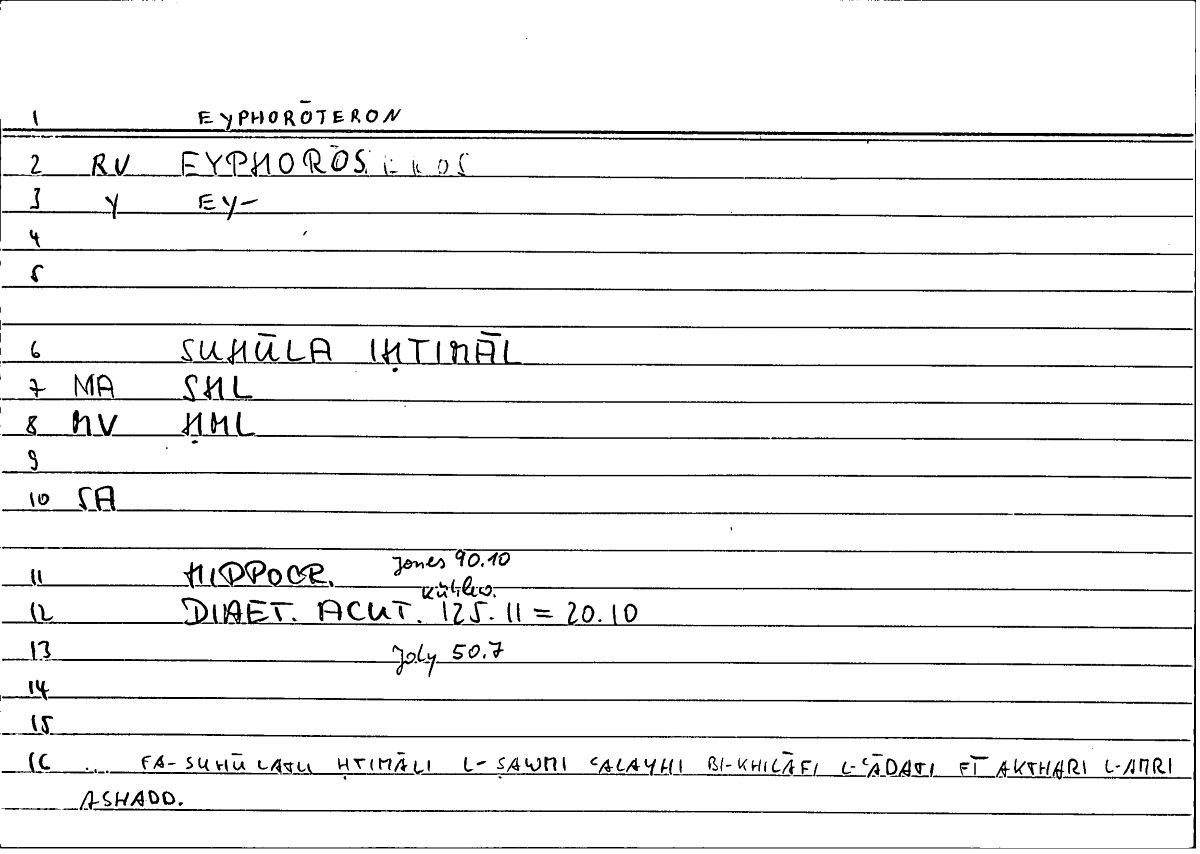 1 EYPHORŌTERON
2 RV EYPHORŌS
3 Y EY-
4
5
6 SUHŪLA IḤTIMĀL
7 MA SHL
8 MV ḤML
9
10 SA
Jones 90.10
11 HIPPOCR.
Kühlew.
12 DIAET. ACUT. 125.11 = 20.10
13 Joly 50.7
14
15
16 ... FA-SUHŪLATU ḤTIMĀLI L-ṢAWMI ʿALAYHI BI-KHILĀFI L-ʿĀDATI FĪ AKTHARI L-AMRI
ASHADD.